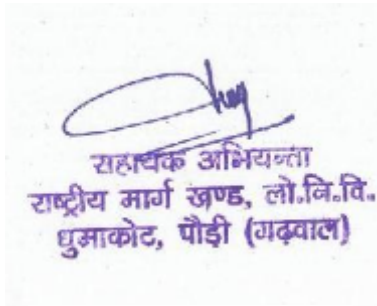 सहायक अभियन्ता
राष्ट्रीय मार्ग खण्ड, लो.नि.वि.
धुमाकोट, पौड़ी (गढ़वाल)